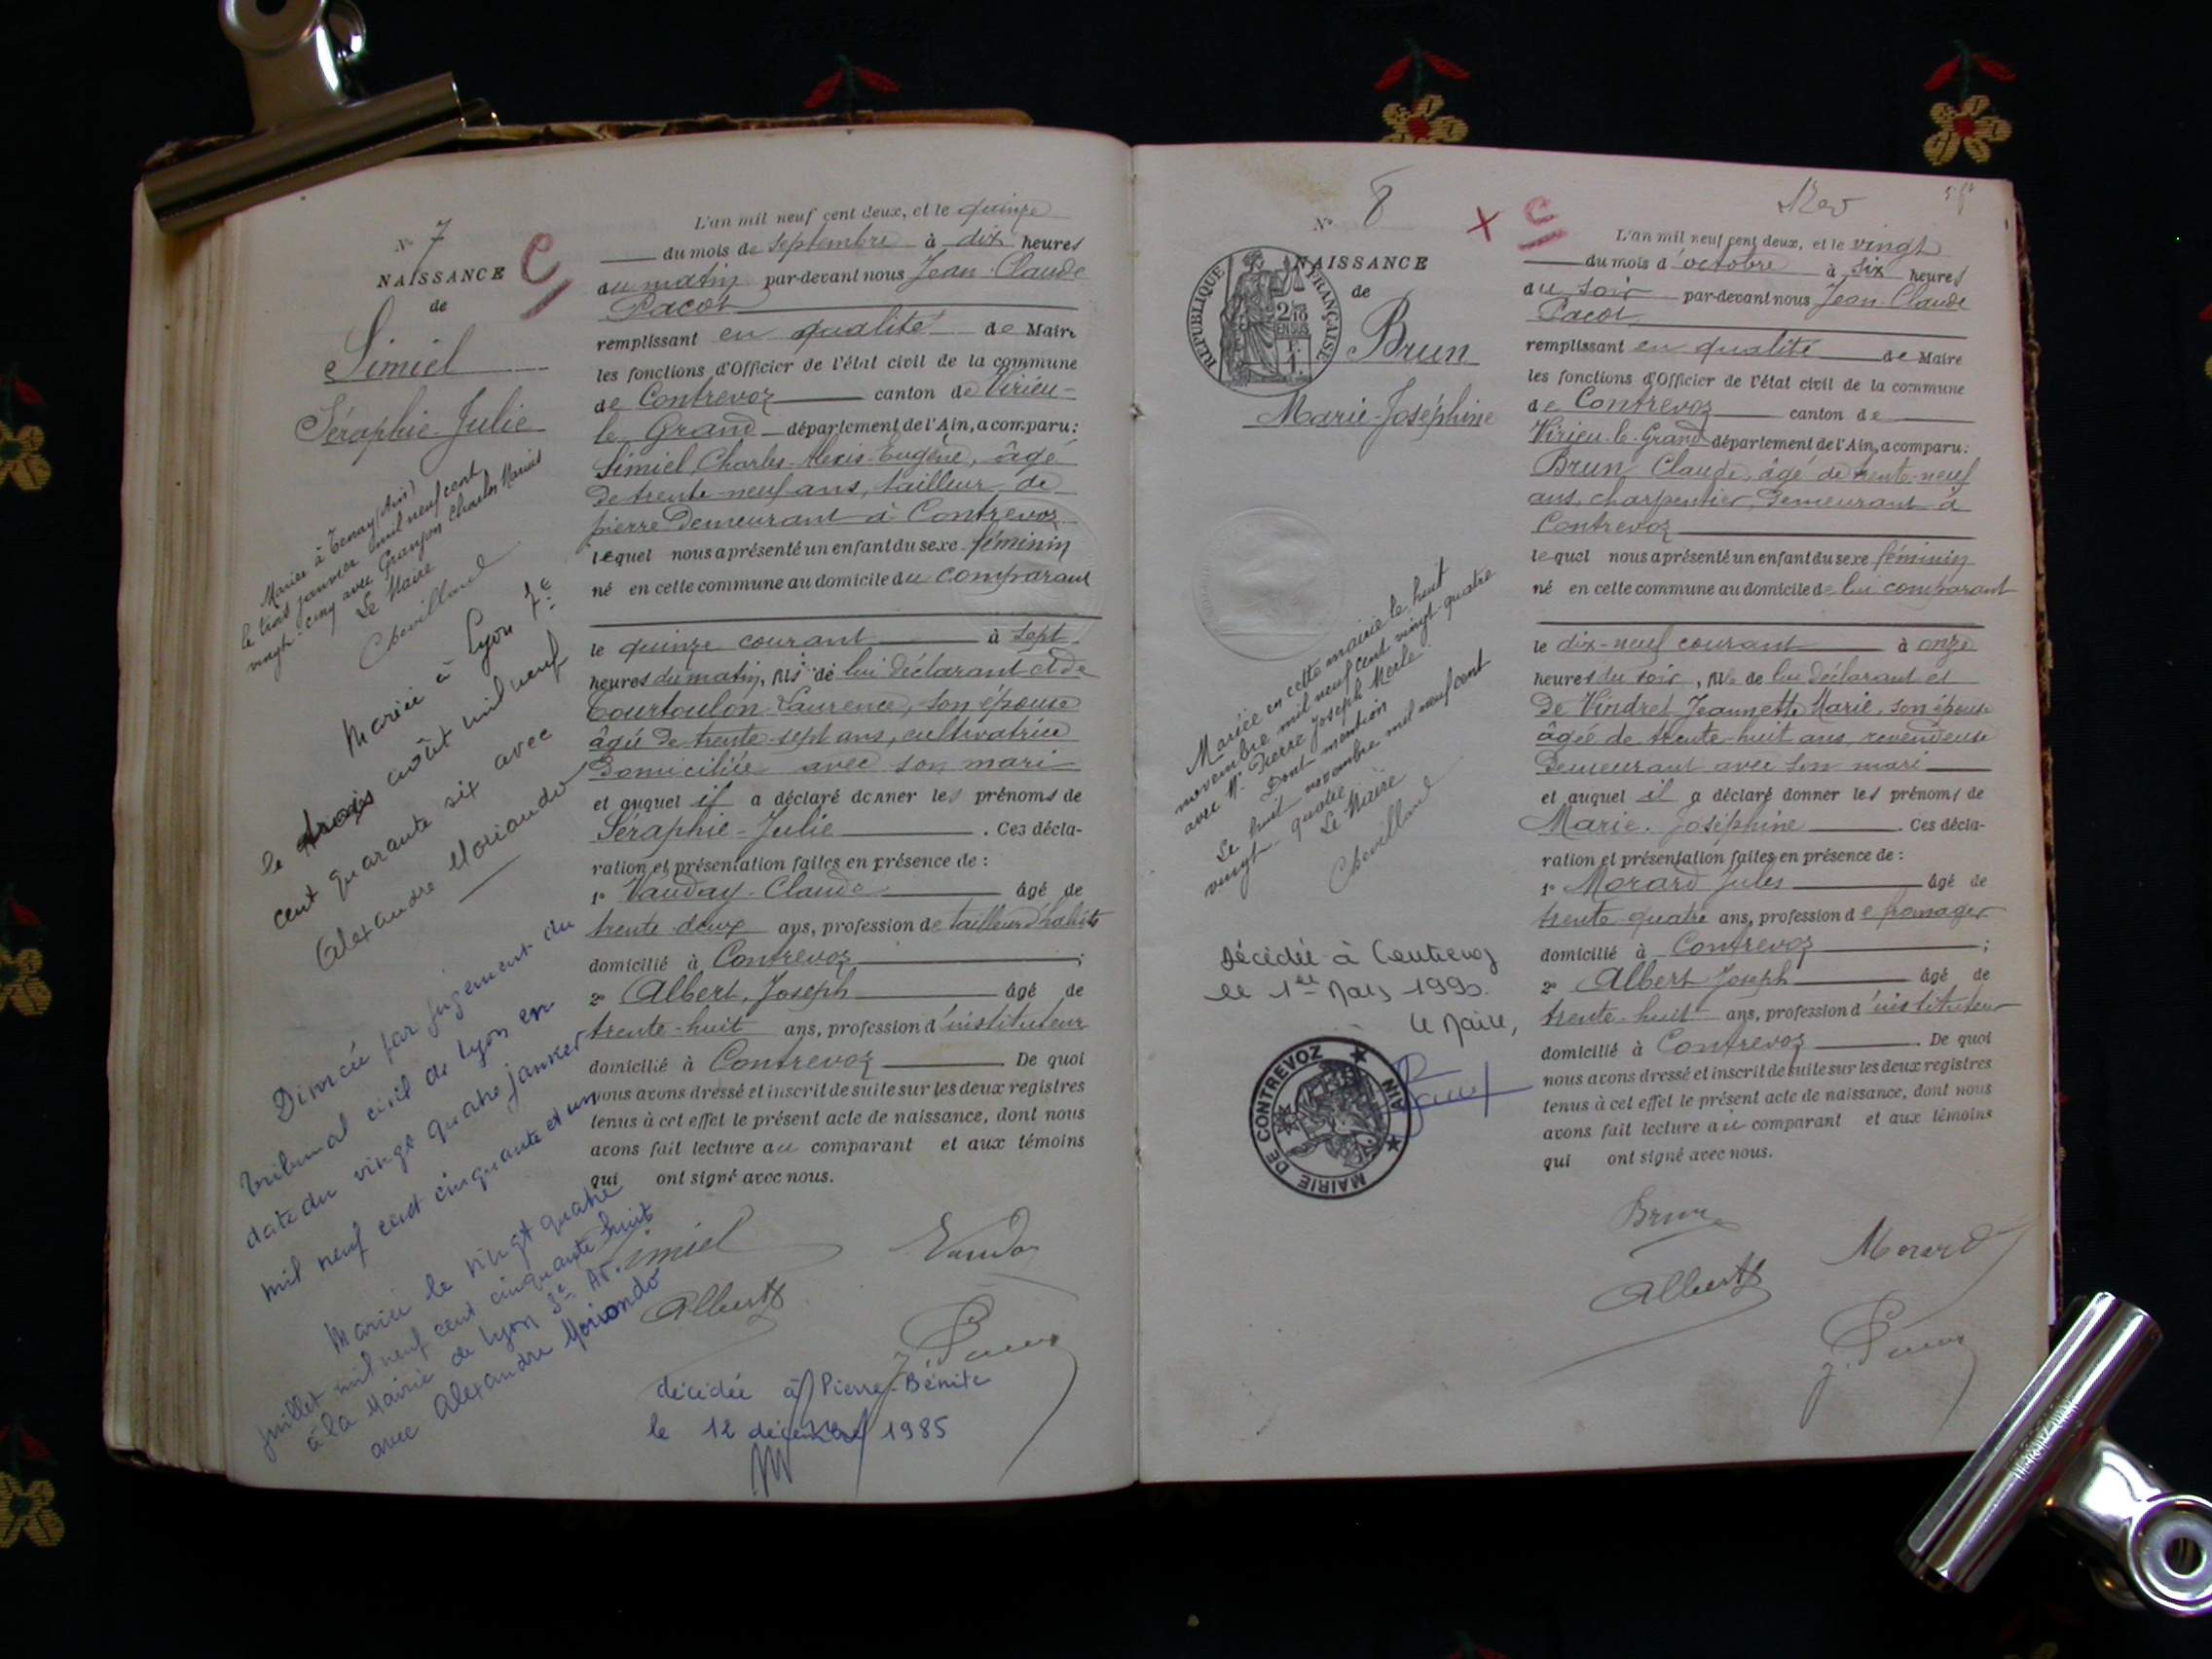 N° 7
NAISSANCE
de
Simiel
Séraphie-Julie
C
Mariée à Tenay (Ain)
le trois janvier mil neuf cent
vingt-cinq avec Granjon Charles Marius
Le Maire
Chevilland
Mariée à Lyon 7e
le trois août mil neuf
cent quarante six avec
Alexandre Moriondo
Divorcée par jugement du
tribunal civil de Lyon en
date du vingt quatre janvier
mil neuf cent cinquante et un
Mariée le vingt quatre
juillet mil neuf cent cinquante huit
à la Mairie de Lyon 3e Ar.
avec Alexandre Moriondo
L'an mil neuf cent deux, et le quinze
du mois de septembre à dix heures
du matin par-devant nous Jean-Claude
Pacot
remplissant en qualité de Maire
les fonctions d'Officier de l'état civil de la commune
de Contrevoz canton de Virieu-
le Grand département de l'Ain, a comparu:
Simiel Charles-Alexis-Eugène, âgé
de trente-neuf ans, tailleur de
pierre demeurant à Contrevoz
lequel nous a présenté un enfant du sexe féminin
né en cette commune au domicile du comparant
le quinze courant à sept
heures du matin, fils de lui déclarant et de
Courtoulon Laurence, son épouse
âgée de trente-sept ans, cultivatrice
domiciliée avec son mari
et auquel il a déclaré donner les prénoms de
Séraphie-Julie . Ces décla-
ration et présentation faites en présence de :
1° Vauday-Claude âgé de
trente-deux ans, profession de tailleur d'habits
domicilié à Contrevoz ;
2° Albert, Joseph âgé de
trente-huit ans, profession d'instituteur
domicilié à Contrevoz De quoi
nous avons dressé et inscrit de suite sur les deux registres
tenus à cet effet le présent acte de naissance, dont nous
avons fait lecture au comparant et aux témoins
qui ont signé avec nous.
Simiel Vauday
Albert
décédée à Pierre-Bénite
le 12 décembre 1985
N° 8
X C
REPUBLIQUE FRANÇAISE
2/10
EN SUS
F.
1.
NAISSANCE
de
Brun
Marie-Joséphine
Mariée en cette mairie le huit
novembre mil neuf cent vingt-quatre
avec Mr Pierre Joseph Merle
Dont mention
Le huit novembre mil neuf cent
vingt-quatre
Le Maire
Chevilland
Décédée à Contrevoz
le 1er Mars 1990.
Le Maire,
MAIRIE DE CONTREVOZ
AIN
L'an mil neuf cent deux, et le vingt
du mois d'octobre à six heures
du soir par-devant nous Jean-Claude
Pacot
remplissant en qualité de Maire
les fonctions d'Officier de l'état civil de la commune
de Contrevoz canton de
Virieu-le-Grand département de l'Ain, a comparu:
Brun Claude, âgé de trente-neuf
ans, charpentier, demeurant à
Contrevoz
lequel nous a présenté un enfant du sexe féminin
né en cette commune au domicile de lui comparant
le dix-neuf courant à onze
heures du soir, fils de lui déclarant et
de Vindret Jeannette Marie, son épouse
âgée de trente-huit ans, revendeuse
demeurant avec son mari
et auquel il a déclaré donner les prénoms de
Marie-Joséphine . Ces décla-
ration et présentation faites en présence de :
1° Morard Jules âgé de
trente quatre ans, profession de fromager
domicilié à Contrevoz ;
2° Albert Joseph âgé de
trente-huit ans, profession d'instituteur
domicilié à Contrevoz . De quoi
nous avons dressé et inscrit de suite sur les deux registres
tenus à cet effet le présent acte de naissance, dont nous
avons fait lecture au comparant et aux témoins
qui ont signé avec nous.
Brun
Morard
Albert